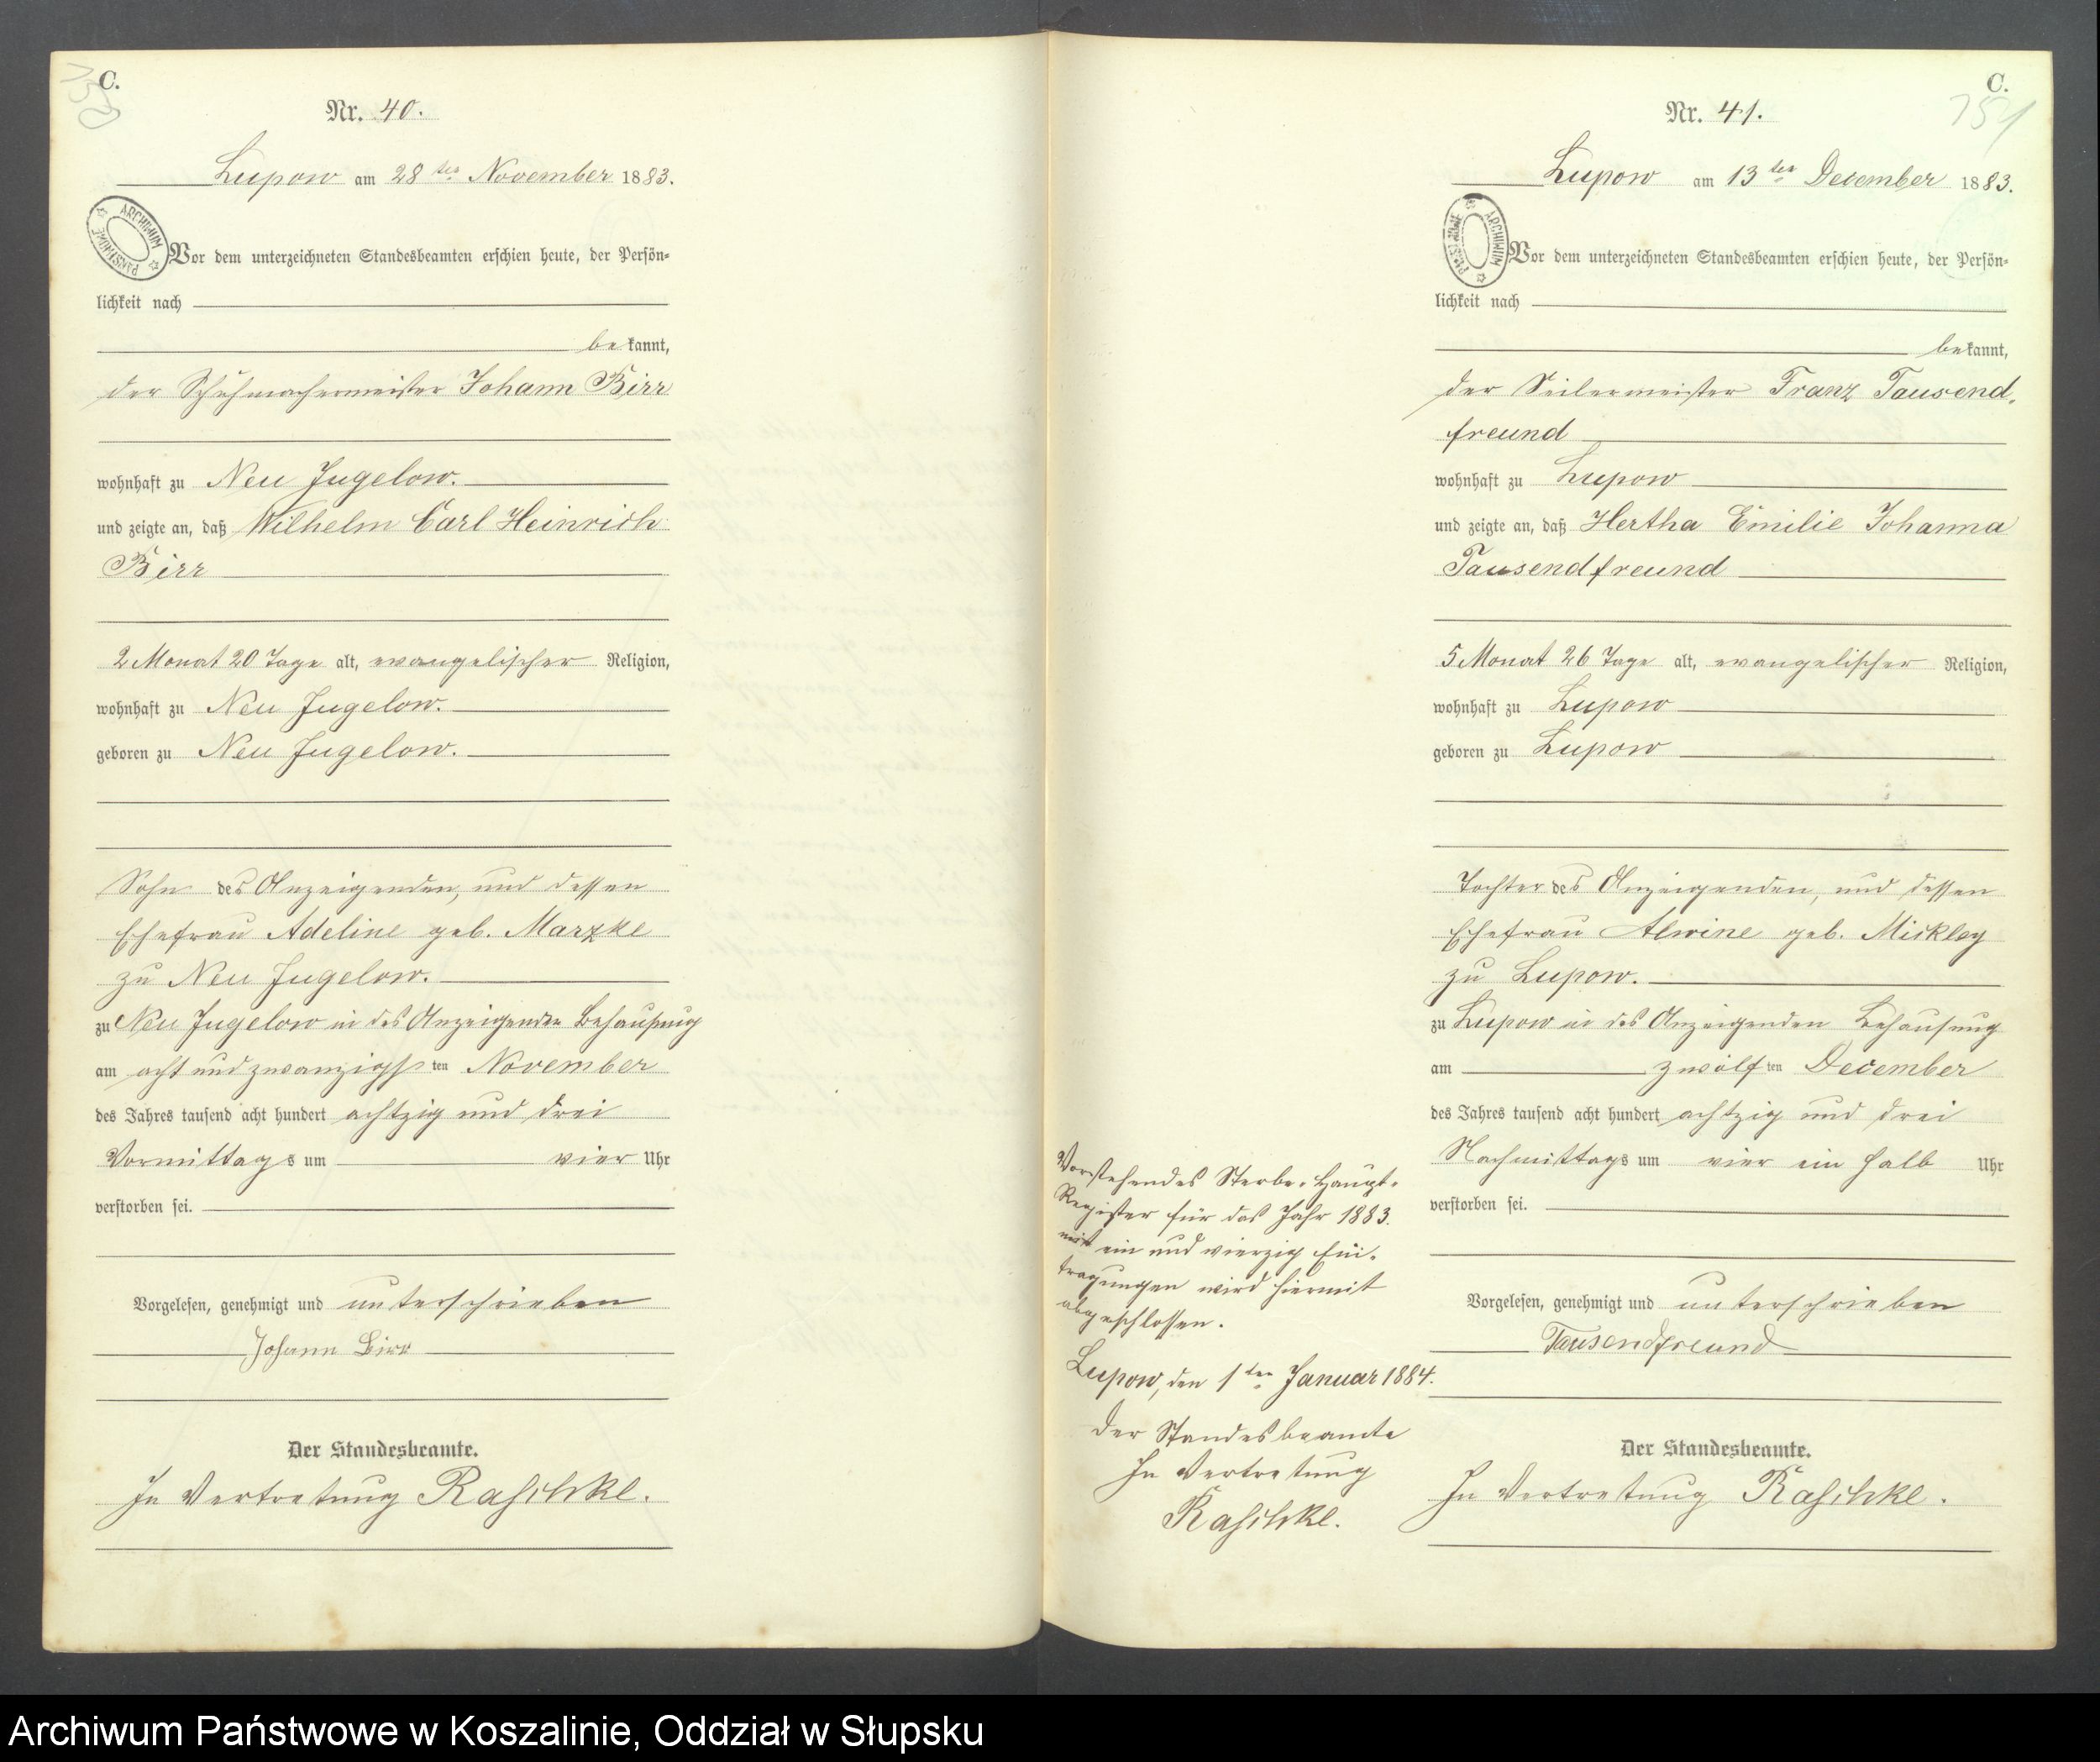 C.
Nr. 40.
Lupow am 28ten November 1883.
ARCHIWUM PAŃSTWOWE
Vor dem unterzeichneten Standesbeamten erschien heute, der Persön-
lichkeit nach
bekannt,
der Schuhmachermeister Johann Birr
wohnhaft zu Neu Jugelow.
und zeigte an, daß Wilhelm Carl Heinrich
Birr
2 Monat 20 Tage alt, evangelischer Religion,
wohnhaft zu Neu Jugelow.
geboren zu Neu Jugelow.
Sohn des Anzeigenden, und dessen
Ehefrau Adeline geb. Marzke
zu Neu Jugelow.
zu Neu Jugelow in des Anzeigenden Behausung
am acht und zwanzigsten November
des Jahres tausend acht hundert achtzig und drei
Vormittags um vier Uhr
verstorben sei.
Vorgelesen, genehmigt und unterschrieben
Johann Birr
Der Standesbeamte.
In Vertretung Raschke.
C.
751
Nr. 41.
Lupow am 13ten December 1883.
ARCHIWUM PAŃSTWOWE
Vor dem unterzeichneten Standesbeamten erschien heute, der Persön-
lichkeit nach
bekannt,
der Seilermeister Franz Tausend-
freund
wohnhaft zu Lupow
und zeigte an, daß Hertha Emilie Johanna
Tausendfreund
5 Monat 26 Tage alt, evangelischer Religion,
wohnhaft zu Lupow
geboren zu Lupow
Tochter des Anzeigenden, und dessen
Ehefrau Alwine geb. Mickley
zu Lupow.
zu Lupow in des Anzeigenden Behausung
am zwölften December
des Jahres tausend acht hundert achtzig und drei
Nachmittags um vier ein halb Uhr
verstorben sei.
Vorgelesen, genehmigt und unterschrieben
Tausendfreund
Der Standesbeamte.
In Vertretung Raschke.
Vorstehendes Sterbe-Haupt-
Register für das Jahr 1883.
mit ein und vierzig Ein-
tragungen wird hiermit
abgeschlossen.
Lupow, den 1ten Januar 1884.
Der Standesbeamte
In Vertretung
Raschke.
Archiwum Państwowe w Koszalinie, Oddział w Słupsku